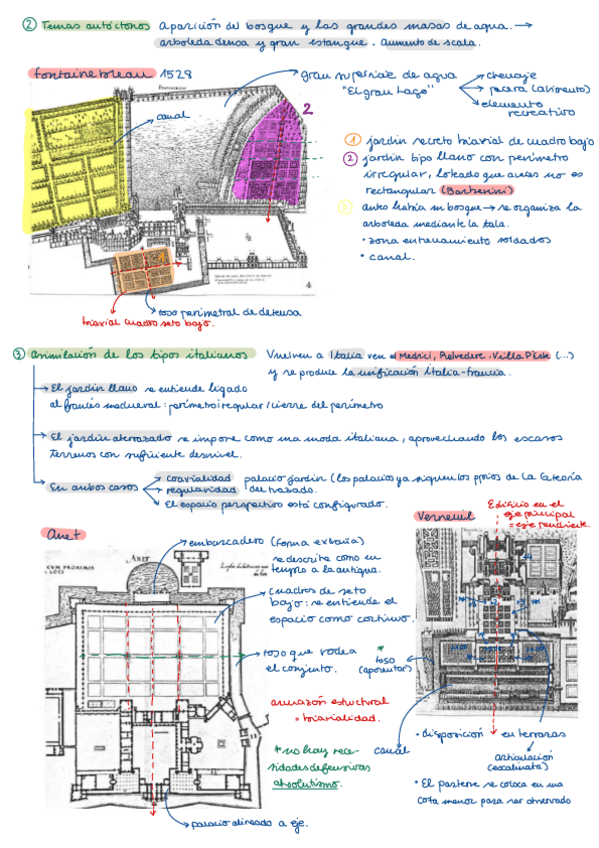 ② Temas autóctonos Aparición del bosque y las grandes masas de agua. →
arboleda densa y gran estanque. Aumento de scala.
Fontainebleau 1528
gran superficie de agua
"El gran Lago"
drenaje
pecera (alimento)
elemento
recreativo
canal
2
① jardín secreto biaxial de cuadro bajo
② jardín tipo llano con perímetro
irregular, loteado que aveces no es
rectangular (Barberini)
③ antes había un bosque → se organiza la
arboleda mediante la tala.
• zona entrenamiento soldados
• canal.
4
foso perimetral de defensa
biaxial cuadro seto bajo.
③ asimilación de los tipos italianos Vuelven a Italia ven el Medici, Belvedere, Villa D'Este (...)
y se produce la unificación Italia-Francia.
→ El jardín llano se entiende ligado
al francés medieval: perímetro irregular / cierre del perímetro
→ El jardín aterrazado se impone como una moda italiana, aprovechando los escasos
terrenos con suficiente desnivel.
→ En ambos casos
coaxialidad palacio jardín (los palacios ya siguen los ppios de la teoría
regularidad del trazado.
El espacio perspectivo está configurado.
Anet
ANET
CVM PROXIMIS
LOCI
embarcadero (forma extraña)
se describe como un
templo a la antigua.
cuadros de seto
bajo: se entiende el
espacio como continuo.
foso que rodea
el conjunto.
armazón estructural
• biaxialidad.
* no hay nece-
sidades defensivas
absolutismo.
palacio alineado a eje.
Verneuil
Edificio en el
eje principal
= eje pendiente.
*
foso
(aporentar)
canal
• disposición en terrazas
articulación
(escalinata)
• El parterre se coloca en una
cota menor para ser observado